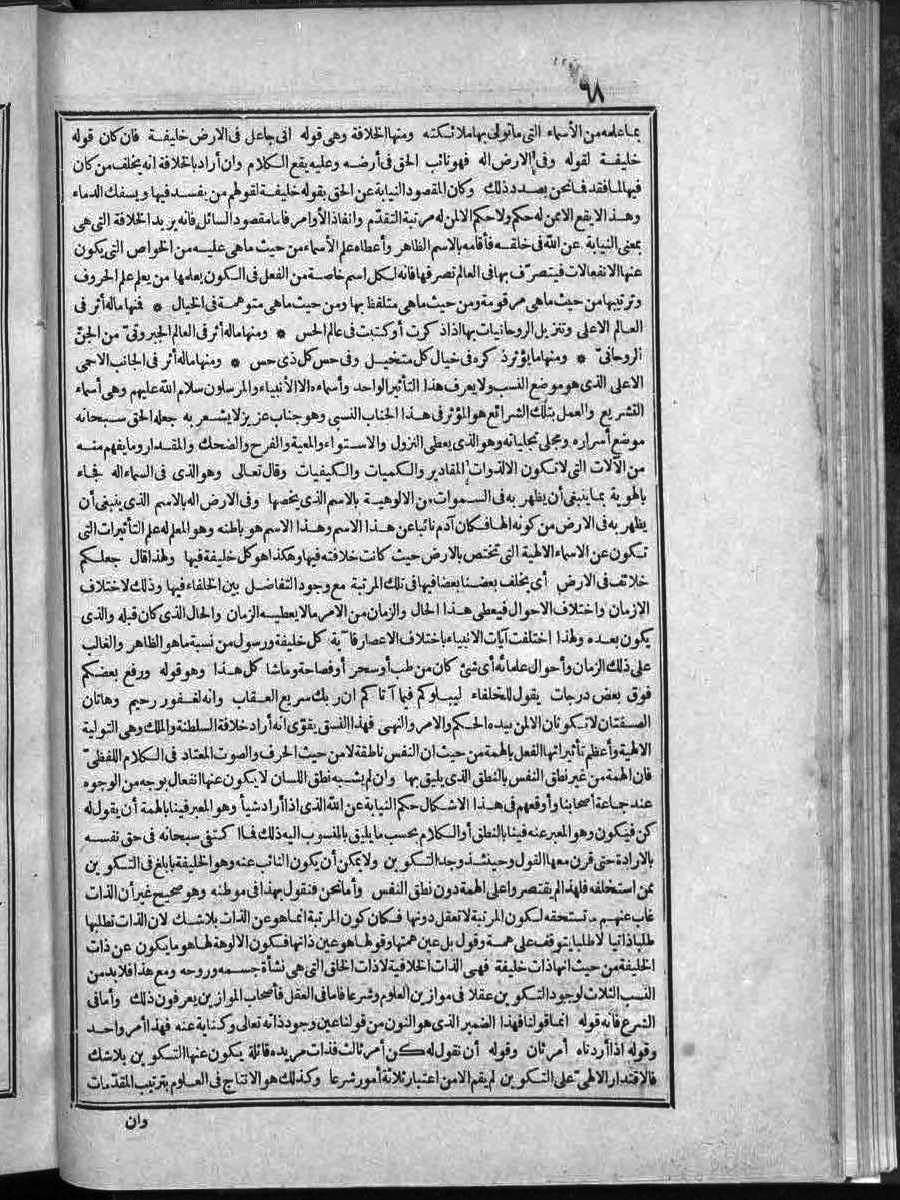 ٦٨
بما علمه من الأسماء التي ما تولى بها ملائكته ومنها الخلافة وهى قوله انى جاعل فى الارض خليفة فان كان قوله
خليفة لقوله وفى الارض اله فهو نائب الحق فى أرضه وعليه يقع الكلام وان أراد بالخلافة انه يخلف من كان
فيها لما فقد فما نحن بصدد ذلك وكان المقصود النيابة عن الحق بقوله خليفة لقولهم من يفسد فيها ويسفك الدماء
وهذا لا يقع الا ممن له حكم ولا حكم الا لمن له مرتبة التقدّم وانفاذ الأوامر فاما مقصود السائل فانه يريد الخلافة التى هى
بمعنى النيابة عن الله فى خلقه فأقامه بالاسم الظاهر وأعطاه علم الأسماء من حيث ماهى عليه من الخواص التى يكون
عنها الانفعالات فيتصرّف بها فى العالم تصرفها فانه لكل اسم خاصة من الفعل فى الكون يعلمها من يعلم علم الحروف
وترتيبها من حيث ماهى مرقومة ومن حيث ماهى متلفظ بها ومن حيث ماهى متوهمة فى الخيال * فمنها ماله أثر فى
العالم الاعلى وتنزيل الروحانيات بها اذا ذكرت أو كتبت فى عالم الحس * ومنها ماله أثر فى العالم الجبروتىّ من الجنّ
الروحانىّ * ومنها ما يؤثر ذكره فى خيال كل متخيل وفى حس كل ذى حس * ومنها ماله أثر فى الجانب الاحمى
الاعلى الذى هو موضع النسب ولا يعرف هذا التأثير الواحد وأسماءه الا الأنبياء والمرسلون سلام الله عليهم وهى أسماء
التشريع والعمل بتلك الشرائع هو المؤثر فى هذا الجناب النسبى وهو جناب عزيز لا يشعر به جعله الحق سبحانه
موضع أسراره ومجلى تجلياته وهو الذى يعطى النزول والاستواء والمعية والفرح والضحك والمقدار وما يفهم منه
من الآلات التى لا تكون الا لذوات المقادير والكميات والكيفيات وقال تعالى وهو الذى فى السماء اله فجاء
بالهوية بما ينبغى أن يظهر به فى السموات من الالوهية بالاسم الذى يخصها وفى الارض اله بالاسم الذى ينبغى أن
يظهر به فى الارض من كونه الها فكان آدم نائبا عن هذا الاسم وهذا الاسم هو باطنه وهو المعلم له علم التأثيرات التى
تكون عن الاسماء الالهية التى تختص بالارض حيث كانت خلافته فيها وهكذا هو كل خليفة فيها ولهذا قال جعلكم
خلائف فى الارض أى يخلف بعضنا بعضا فيها فى تلك المرتبة مع وجود التفاضل بين الخلفاء فيها وذلك لاختلاف
الازمان واختلاف الاحوال فيعطى هذا الحال والزمان من الامر ما لا يعطيه الزمان والحال الذى كان قبله والذى
يكون بعده ولهذا اختلفت آيات الانبياء باختلاف الاعصار فآية كل خليفة ورسول من نسبة ماهو الظاهر والغالب
على ذلك الزمان وأحوال علمائه أى شئ كان من طب أو سحر أو فصاحة وما شا كل هذا وهو قوله ورفع بعضكم
فوق بعض درجات يقول للخلفاء ليبلوكم فيما آتاكم ان ربك سريع العقاب وانه لغفور رحيم وهاتان
الصفتان لا تكونان الا لمن بيده الحكم والامر والنهى فهذا النسق يقوّى انه أراد خلافة السلطنة والملك وهى التولية
الالهية وأعظم تأثيراتها الفعل بالهمة من حيث ان النفس ناطقة لا من حيث الحرف والصوت المعتاد فى الكلام اللفظىّ
فان الهمة من غير نطق النفس بالنطق الذى يليق بها وان لم يشبه نطق اللسان لا يكون عنها انفعال بوجه من الوجوه
عند جماعة أصحابنا وأوقعهم فى هذا الاشكال حكم النيابة عن الله الذى اذا أراد شيأ وهو المعبر فينا بالهمة أن يقول له
كن فيكون وهو المعبر عنه فينا بالنطق أو الكلام بحسب ما يليق بالمنسوب اليه ذلك فما اكتفى سبحانه فى حق نفسه
بالارادة حتى قرن معها القول وحينئذ وجد التكوين ولا يمكن أن يكون النائب عنه وهو الخليفة بابلغ فى التكوين
ممن استخلفه فلهذا لم يقتصروا على الهمة دون نطق النفس وأما نحن فنقول بهذا فى موطنه وهو صحيح غير أن الذات
غاب عنهم ما تستحقه لكون المرتبة لا تعقل دونها فكان كون المرتبة انما هو عن الذات بلا شك لان الذات تطلبها
طلبا ذاتيا لا طلبا يتوقف على همة وقول بل عين همتها وقولها هو عين ذاتها فكون الالوهة لها هو ما يكون عن ذات
الخليفة من حيث انها ذات خليفة فهى الذات الخلافية لا ذات الخلق التى هى نشأة جسمه وروحه ومع هذا فلا بد من
النسب الثلاث لوجود التكوين عقلا فى موازين العلوم وشرعا فاما فى العقل فأصحاب الموازين يعرفون ذلك وأما فى
الشرع فانه قوله انما قولنا فهذا الضمير الذى هو النون من قولنا عين وجود ذاته تعالى وكناية عنه فهذا أمر واحد
وقوله اذا أردناه أمر ثان وقوله أن نقول له كن أمر ثالث فذات مريده قائلة يكون عنها التكوين بلا شك
فالاقتدار الالهىّ على التكوين لم يقم الا من اعتبار ثلاثة أمور شرعا وكذلك هو الانتاج فى العلوم بترتيب المقدّمات
وان